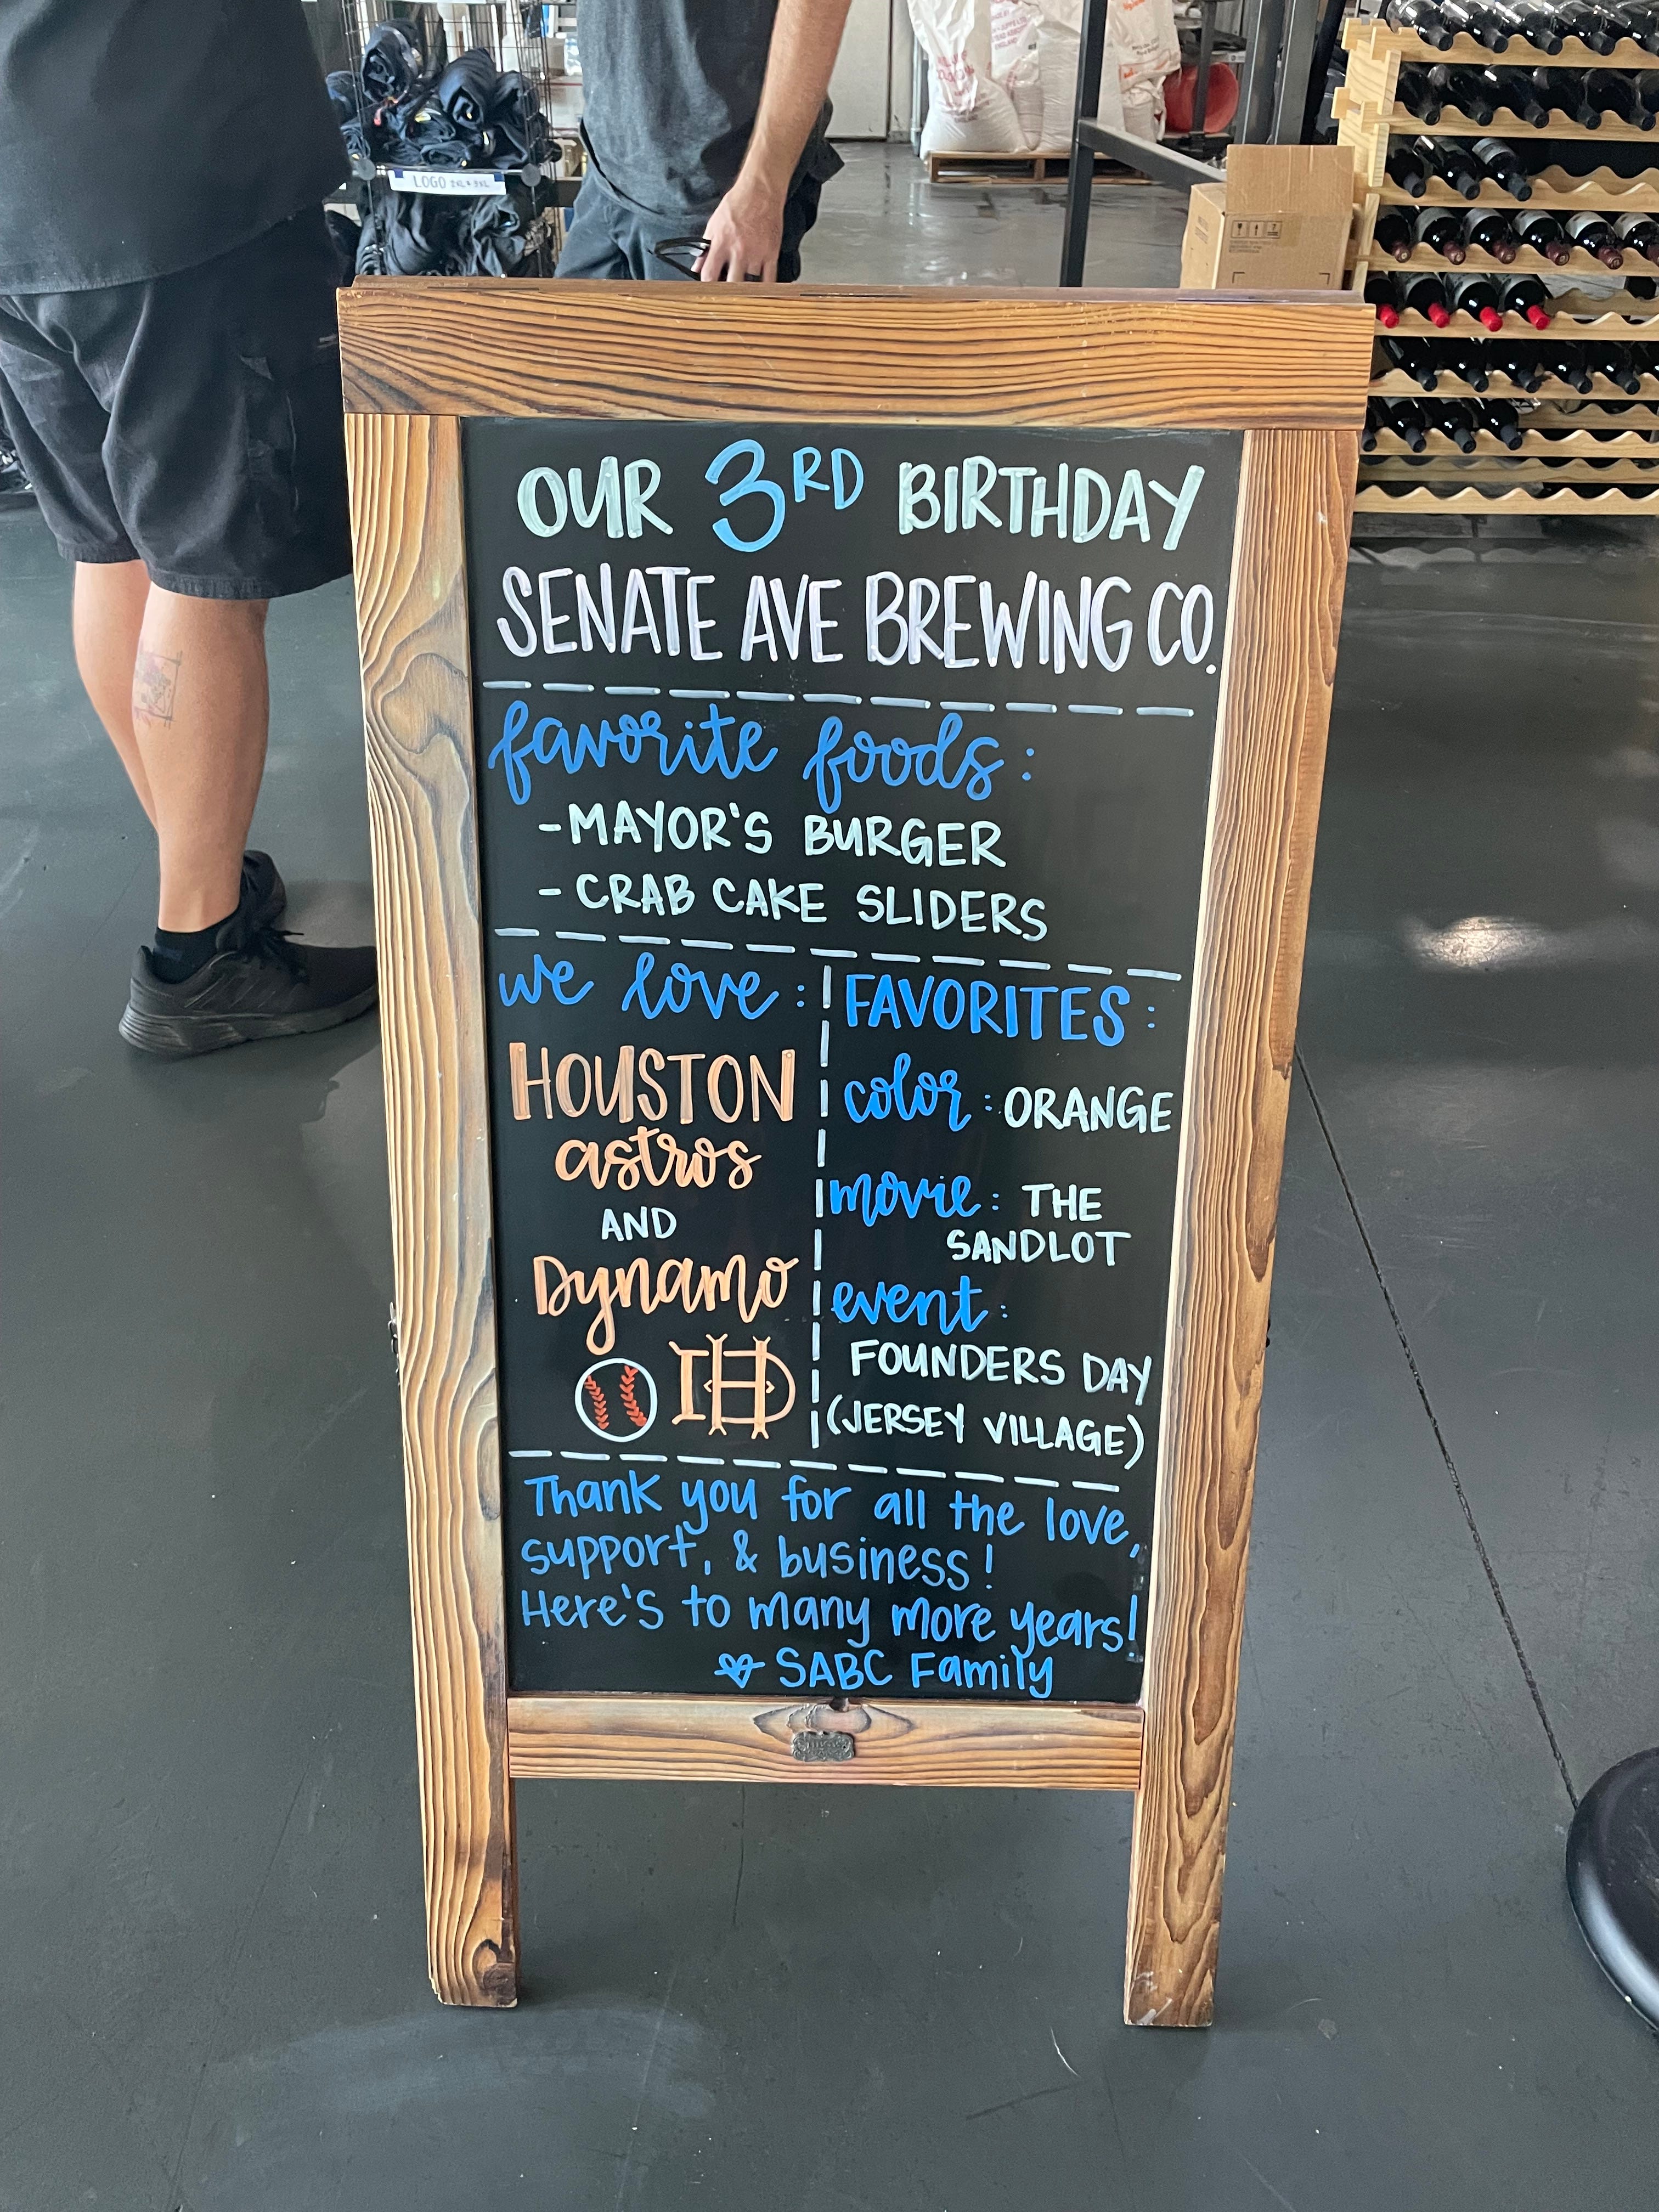 LOGO 2XL & 3XL
OUR 3RD BIRTHDAY
SENATE AVE BREWING CO.
favorite foods:
- MAYOR'S BURGER
- CRAB CAKE SLIDERS
we love:
HOUSTON
astros
AND
Dynamo
HD
FAVORITES:
color: ORANGE
movie: THE
SANDLOT
event:
FOUNDERS DAY
(JERSEY VILLAGE)
Thank you for all the love,
support, & business!
Here's to many more years!
SABC Family